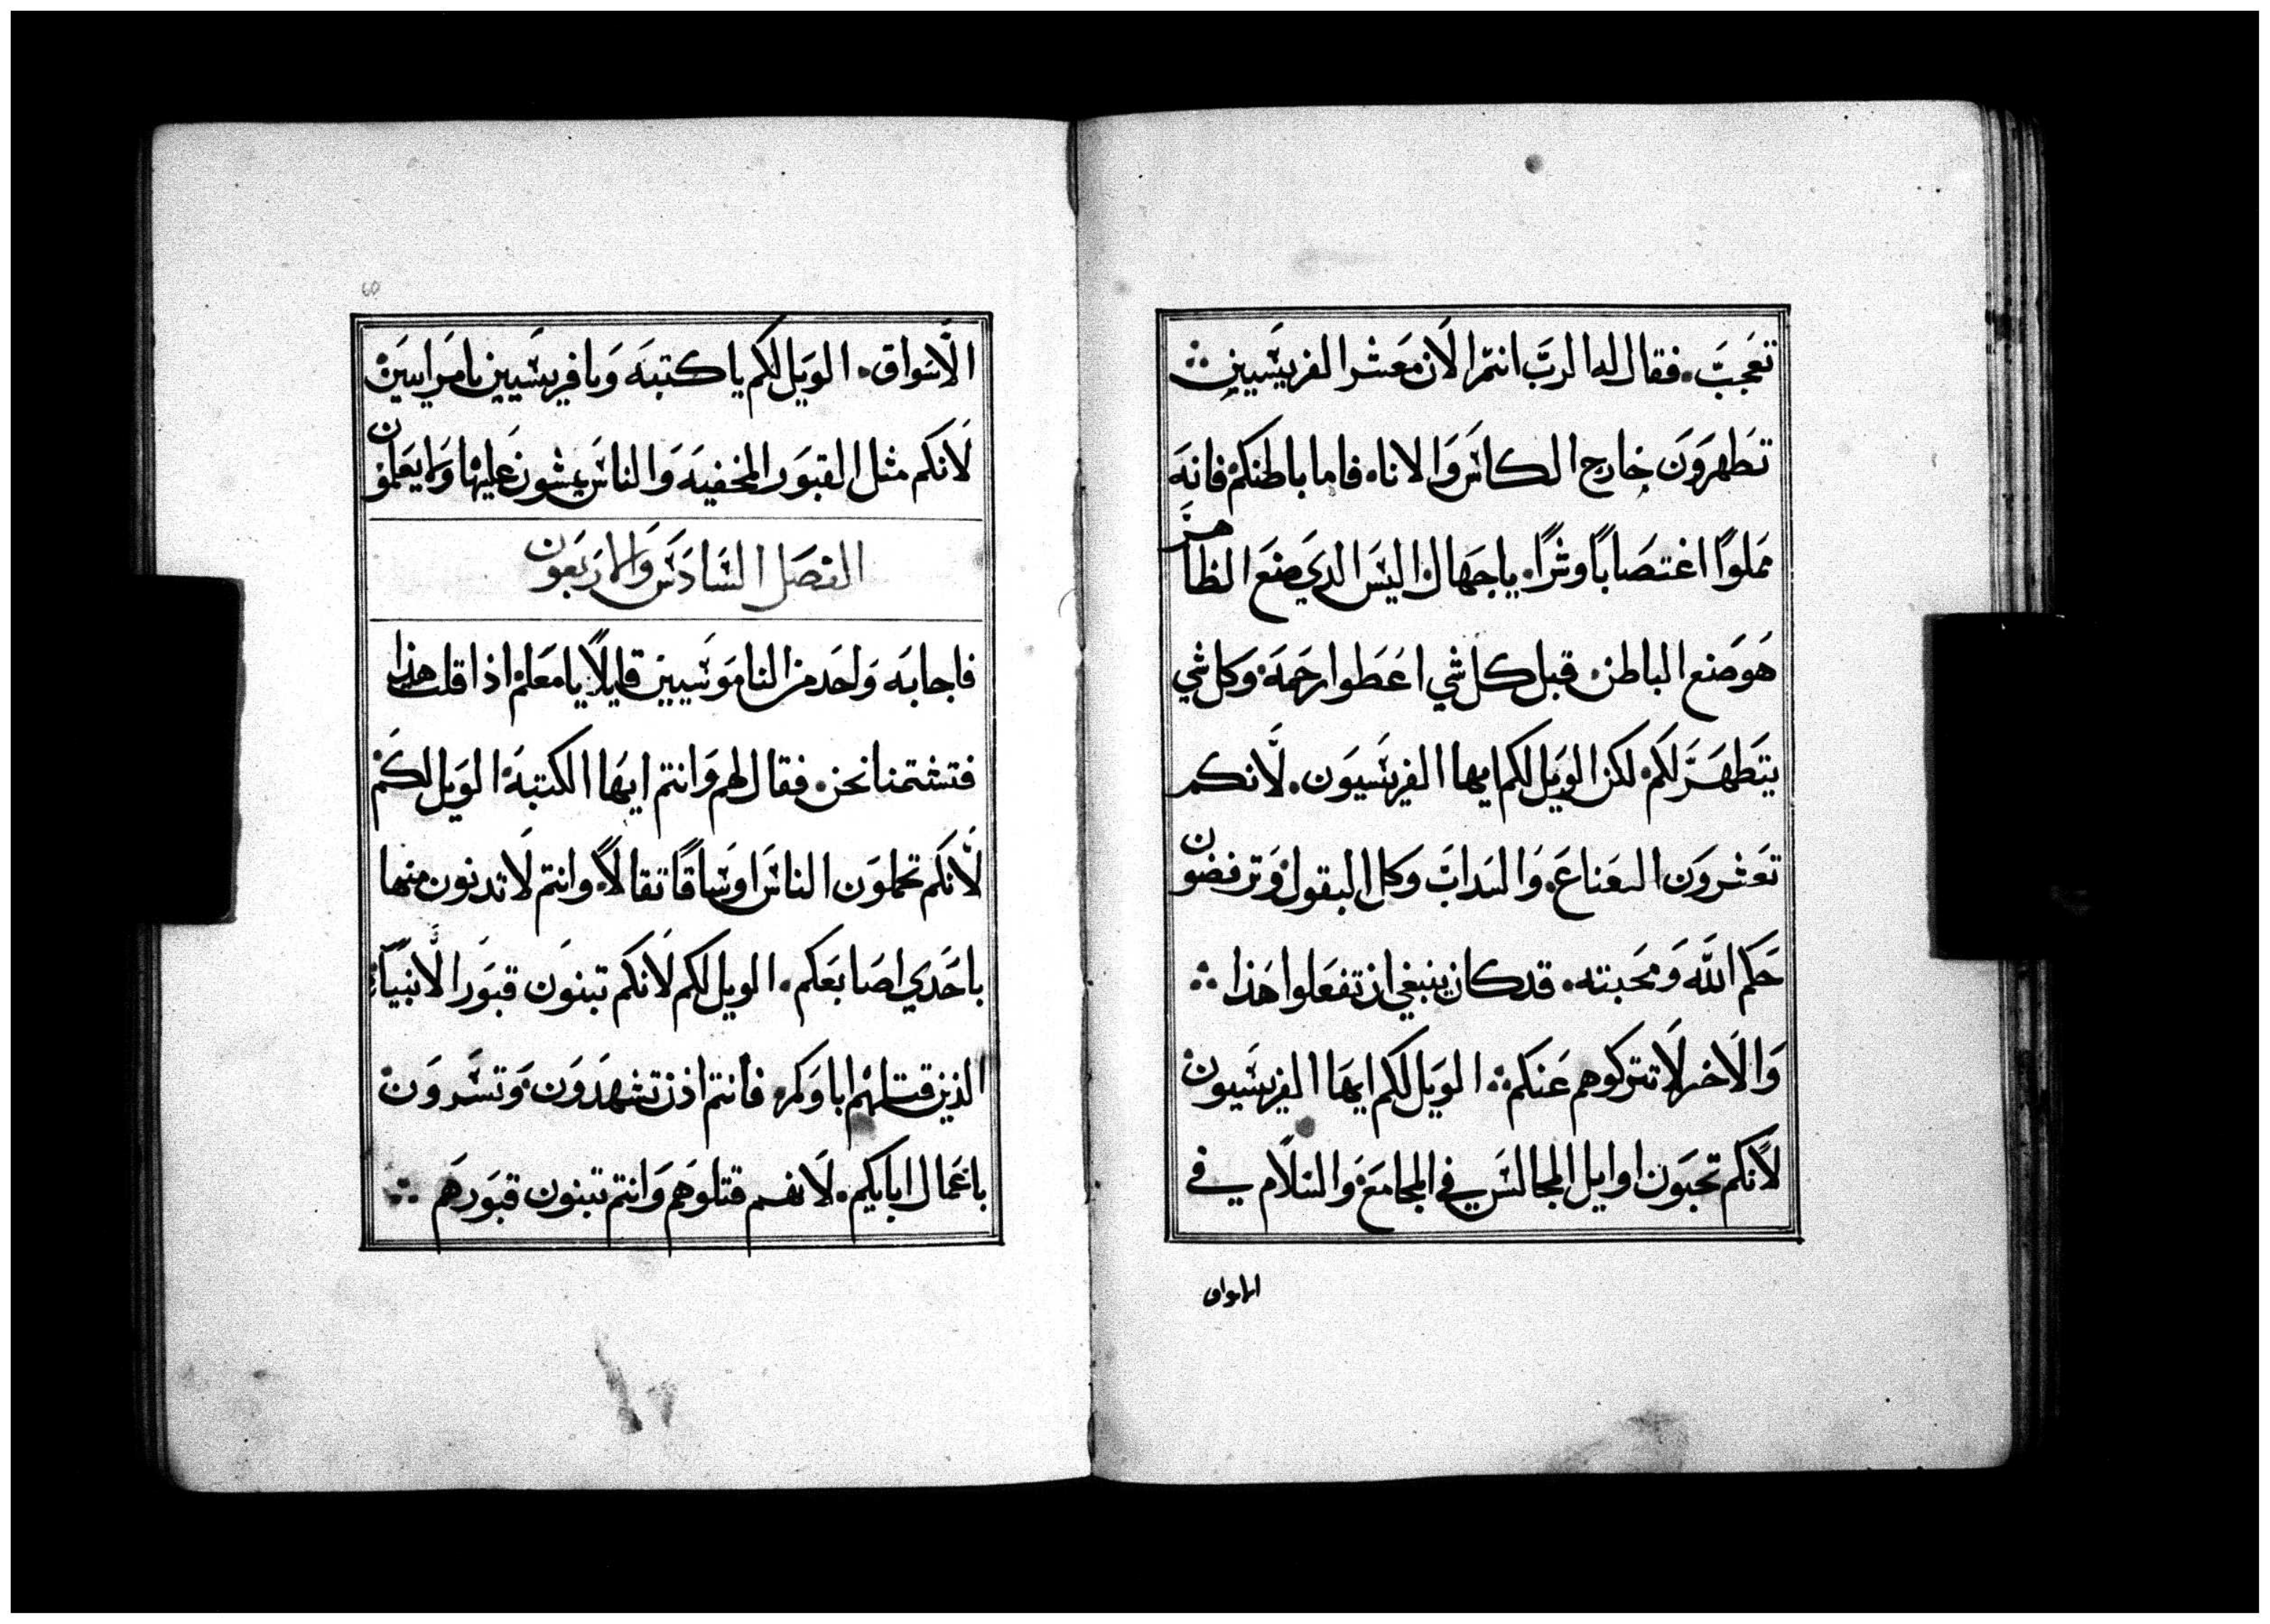 تعجبَّ. فقال له الربَّ انتم الان مَعَشر الفريسَيين
تطهرَوَن خارج الكاسَ وَالاناه فاما باطنكم فانهَ
مَملوًا اغتصَاباً وشرًا. ياجهَال اليسَ الدي صَنعَ الظاهَّر
هَوصَنع الباطن. قبل كل شي اعَطوا رحَمهَ وكل شي
يتَطهَرَّ لكَم. لكن الوَيل لكم ايها الفريسَيوَن. لَّانكم
تعَشروَن النعناعَ. وَالسَدابَ وكل البقول وَترفضَون
حَكم اللَّه وَمحَبته. قد كان ينبغي ان تفعَلوا هَذا
وَالاخر لَا تتركوهم عَنكم. الوَيل لكم ايهَا الفريسَيون
لاَنكم تحبَون اوايل المجالسَ في المجامعَ وَالسَلاَم في
الاسواق
الَّاسَواق. الوَيل لكَم ياكتبهَ وَيا فريسَيين يا مَرايَين
لَانكم مثل القبوَر المخفيهَ وَالناسَ يمشون عَليهَا وَلا يعَلمون
الفصَل السَادَسَ وَالارَبعَون
فاجابهَ وَاحَد من الناموَسَيين قايلًا يا معَلم اذا قلت هذا
فتشتمنا نحن. فقال لهم وَانتم ايهَا الكتبهَ الوَيل لكَم
لَّانكَم تحملوَن الناسَ اوسَاقًا تقالًا. وانتم لَا تدنون منها
باحَدي اصَابعَكم. الويل لكم لَانكَم تبنوَن قبوَر الَّانبيَآء
الذين قتلهَم اباوَكم. فانتم اذن تشهَدَوَن وَتسَروَن
باعَمال ابايكم. لَانهم قتلوهَم وَانتم تبنون قبوَرهَم